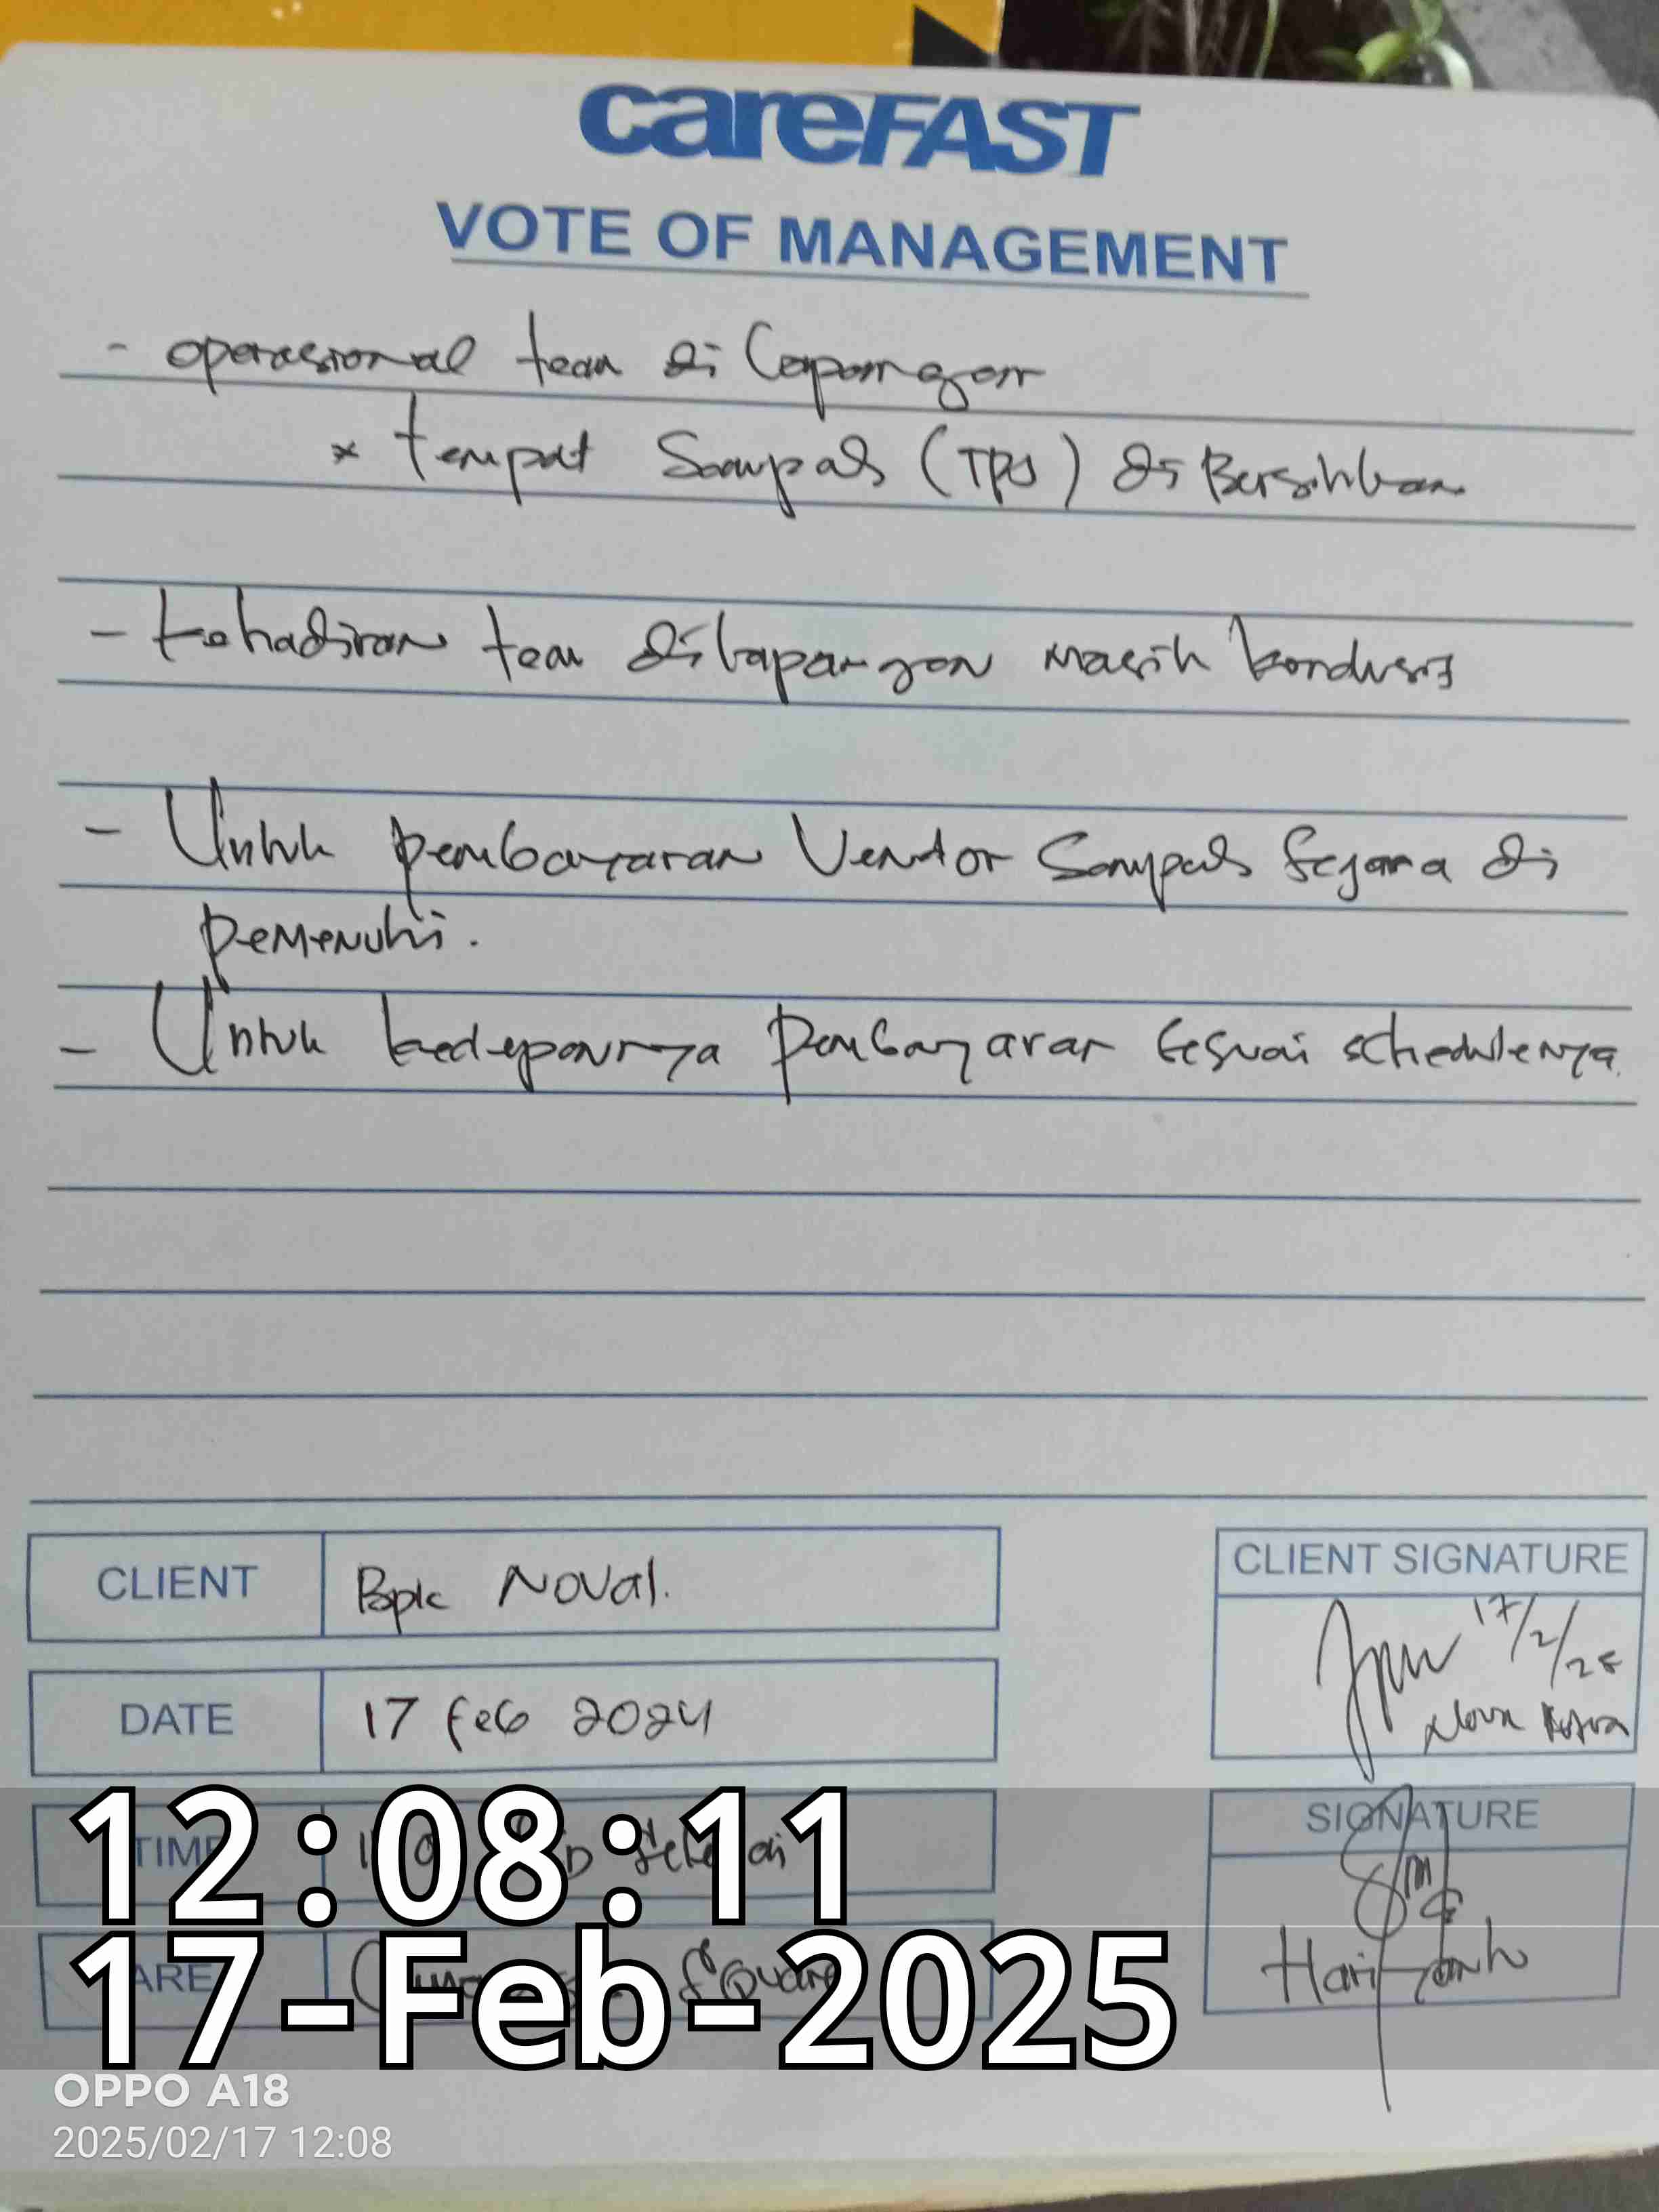 careFAST
VOTE OF MANAGEMENT
- operasional team di Lapangan
* tempat Sampah (TPS) di Bersihkan
- kehadiran team dilapangan masih kondusif
- Untuk pembayaran Vendor Sampah segara di
pemenuhi.
- Untuk kedeponnya pembayaran sesuai schedulenya.
CLIENT
Bpk Noval.
CLIENT SIGNATURE
17/2/25
DATE
17 feb 2024
TIME
SIGNATURE
Hariyanto
ARE
Square
12:08:11
17-Feb-2025
OPPO A18
2025/02/17 12:08